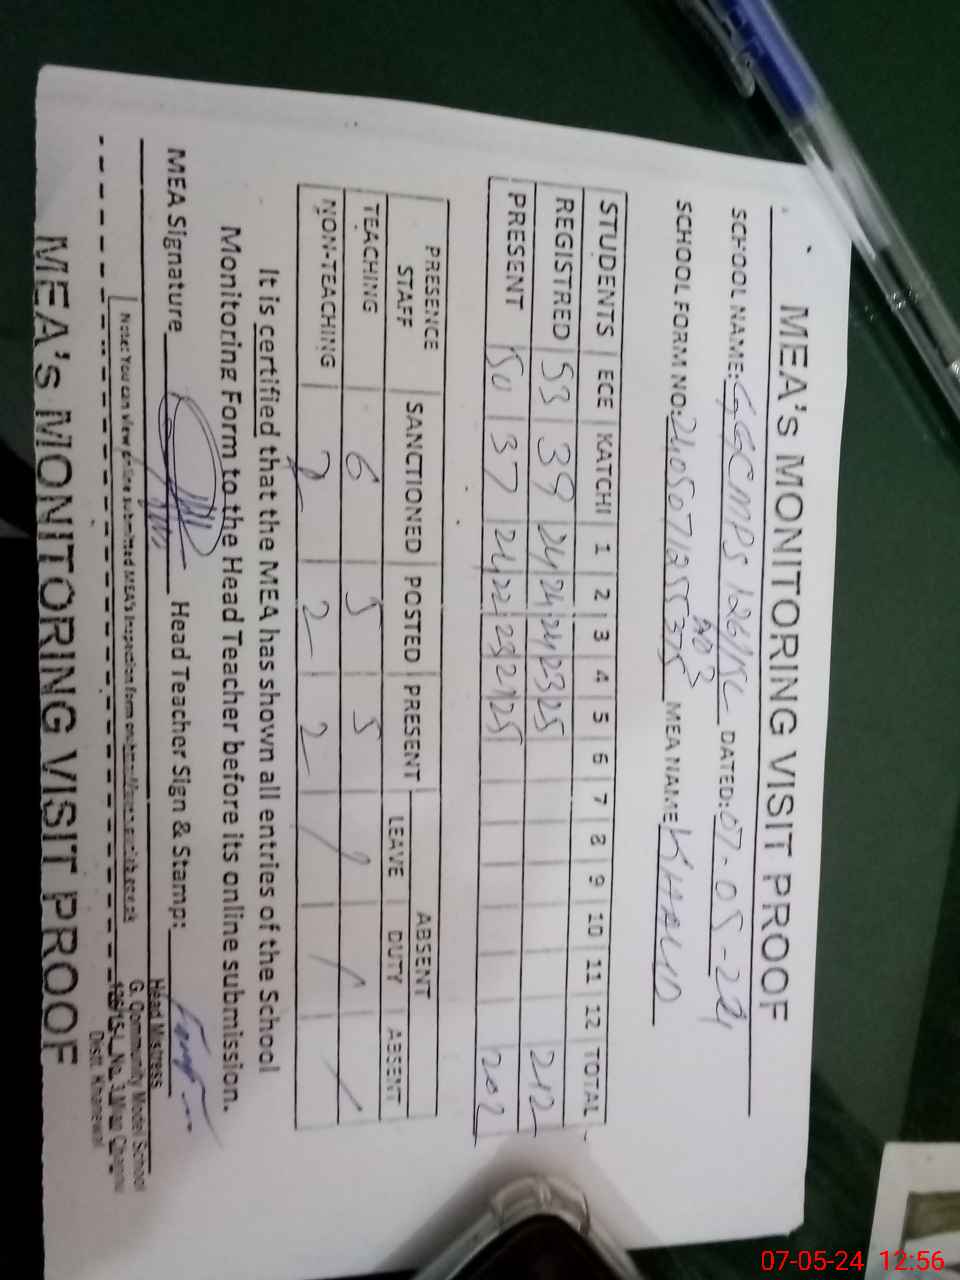 MEA's MONITORING VISIT PROOF
SCHOOL NAME: GGCMPS 126/15L DATED: 07-05-24
NO 3
SCHOOL FORM NO: MEA NAME KHALID
STUDENTS ECE KATCHI 1 2 3 4 5 6 7 8 9 10 11 12 TOTAL
REGISTRED 53 39 24 24 24 23 25 212
PRESENT 50 37 24 22 23 21 25 202
PRESENCE STAFF SANCTIONED POSTED PRESENT ABSENT
LEAVE DUTY ABSENT
TEACHING 6 5 5
NON-TEACHING 2 2 2
It is certified that the MEA has shown all entries of the School
Monitoring Form to the Head Teacher before its online submission.
MEA Signature Head Teacher Sign & Stamp:
Head Mistress
G. Community Model School
126/15-L No. 3 Mian Channu
Distt. Khanewal
Note: You can view online submitted MEA's inspection form on
MEA's MONITORING VISIT PROOF
07-05-24 12:56